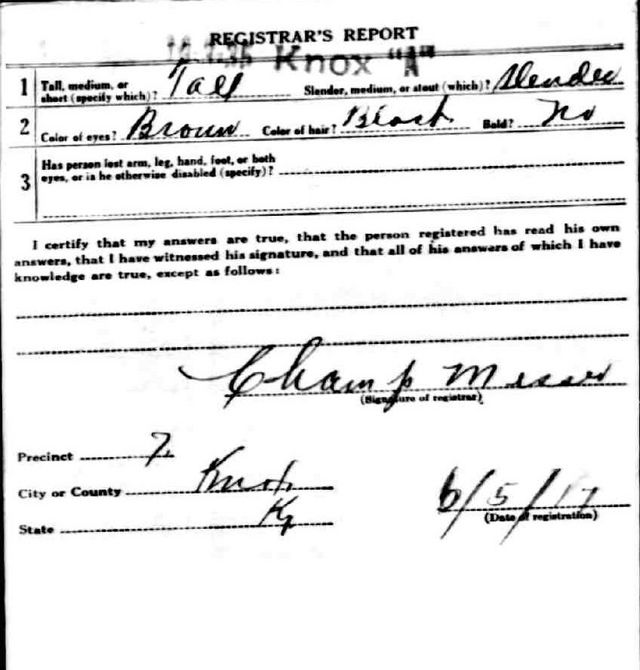 REGISTRAR'S REPORT
Knox "A"
1 Tall, medium, or short (specify which)? Tall Slender, medium, or stout (which)? Slender
2 Color of eyes? Brown Color of hair? Black Bald? No
3 Has person lost arm, leg, hand, foot, or both
eyes, or is he otherwise disabled (specify)?
I certify that my answers are true, that the person registered has read his own
answers, that I have witnessed his signature, and that all of his answers of which I have
knowledge are true, except as follows:
Champ Messer
(Signature of registrar)
Precinct 7.
City or County Knox
State Ky
6/5/17
(Date of registration)